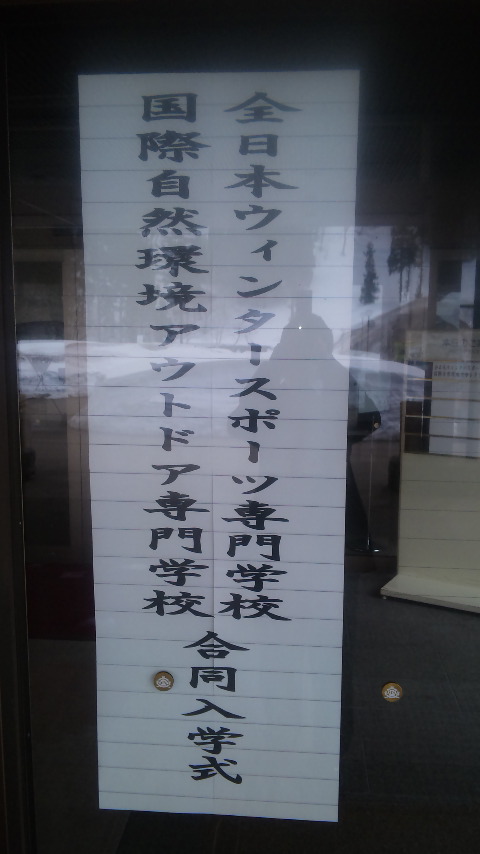 全日本ウィンタースポーツ専門学校
国際自然環境アウトドア専門学校
合同入学式